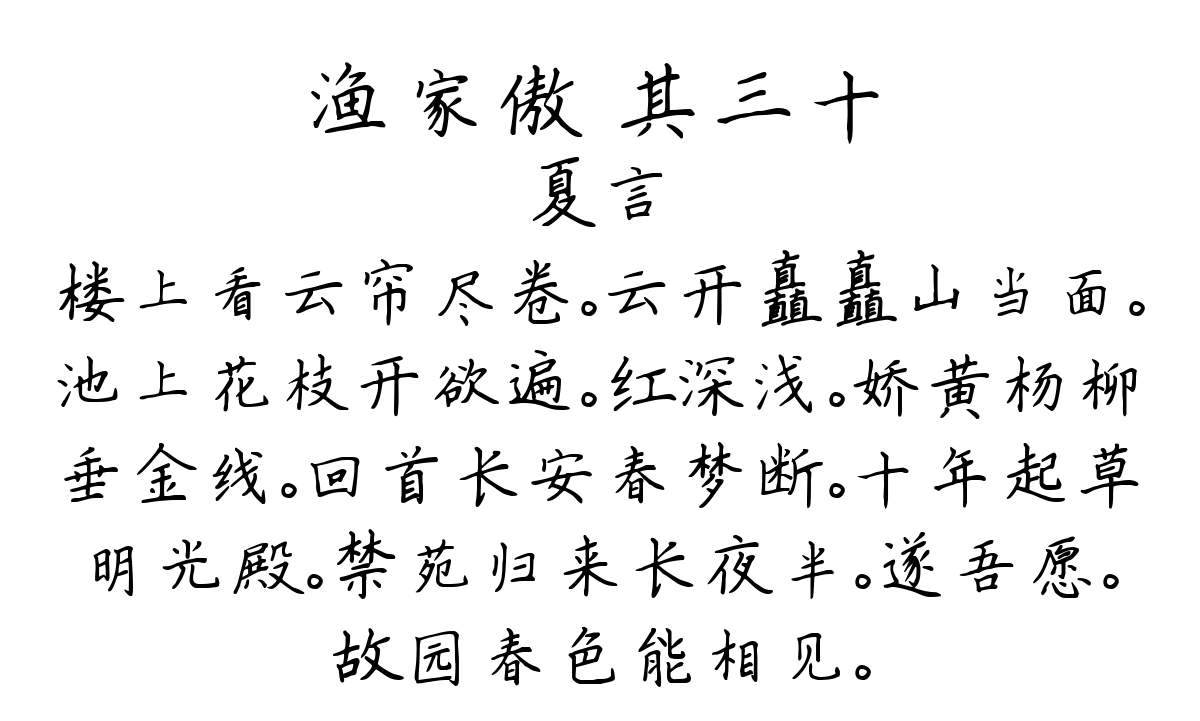 渔家傲 其三十
夏言
楼上看云帘尽卷。云开矗矗山当面。
池上花枝开欲遍。红深浅。娇黄杨柳
垂金线。回首长安春梦断。十年起草
明光殿。禁苑归来长夜半。遂吾愿。
故园春色能相见。